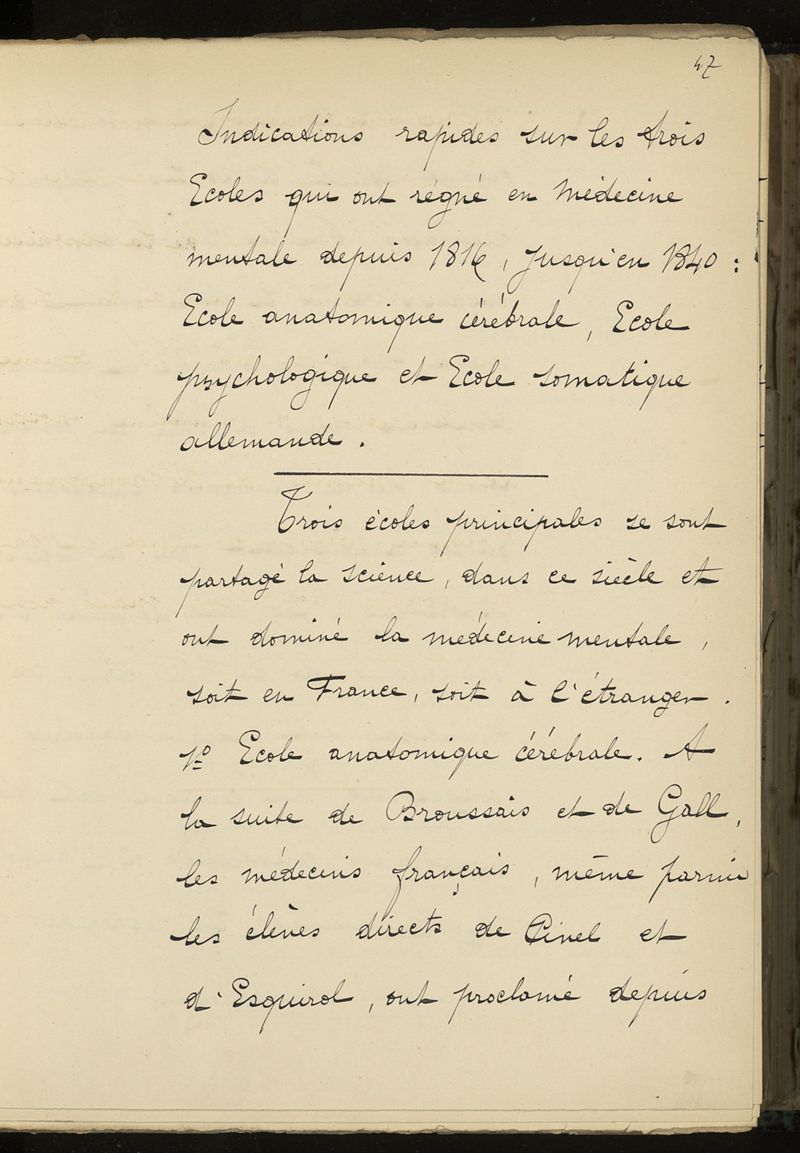 47
Indications rapides sur les trois
Ecoles qui ont régné en Médecine
mentale depuis 1816, jusqu'en 1840 :
Ecole anatomique cérébrale, Ecole
psychologique et Ecole somatique
allemande.
Trois écoles principales se sont
partagé la science, dans ce siècle et
ont dominé la médecine mentale,
soit en France, soit à l'étranger.
1º Ecole anatomique cérébrale. A
la suite de Broussais et de Gall,
les médecins français, même parmi
les élèves directs de Pinel et
d'Esquirol, ont proclamé depuis